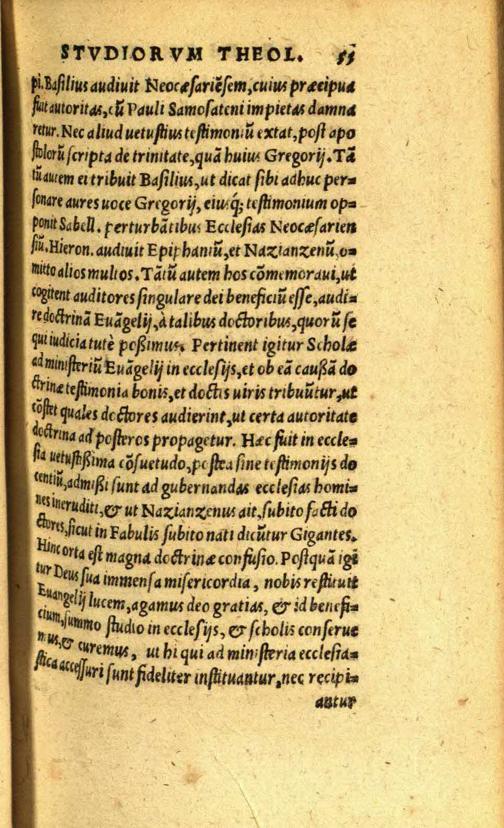 STVDIORVM THEOL. 55
pi. Basilius audiuit Neocæsariẽsem, cuius præcipua
fuit autoritas, cũ Pauli Samosateni impietas damna
retur. Nec aliud uetustius testimoniũ extat, post apo
stolorũ scripta de trinitate, quã huius Gregorij. Tã
tũ autem ei tribuit Basilius, ut dicat sibi adhuc per=
sonare aures uoce Gregorij, eiusq́; testimonium op=
ponit Sabell. perturbãtibus Ecclesias Neocæsarien
siũ. Hieron. audiuit Epiphaniũ, et Nazianzenũ, o=
mitto alios multos. Tãtũ autem hos cõmemoraui, ut
cogitent auditores singulare dei beneficiũ esse, audi=
re doctrinã Euãgelij, à talibus doctoribus, quorũ se
qui iudicia tutè poßimus. Pertinent igitur Scholæ
ad ministeriũ Euãgelij in ecclesijs, et ob eã caußã do
ctrinæ testimonia bonis, et doctis uiris tribuũtur, ut
cõstet quales doctores audierint, ut certa autoritate
doctrina ad posteros propagetur. Hæc fuit in eccle=
sia uetustißima cõsuetudo, postea sine testimonijs do
centiũ, admißi sunt ad gubernandas ecclesias homi=
nes ineruditi, & ut Nazianzenus ait, subito facti do
ctores, sicut in Fabulis subito nati dicũtur Gigantes.
Hinc orta est magna doctrinæ confusio. Postquã igi
tur Deus sua immensa misericordia, nobis restituit
Euangelij lucem, agamus deo gratias, & id benefi=
cium, summo studio in ecclesijs, & scholis conserue
mus, & curemus, ut hi qui ad ministeria ecclesia=
stica accessuri sunt fideliter instituantur, nec recipi=
antur